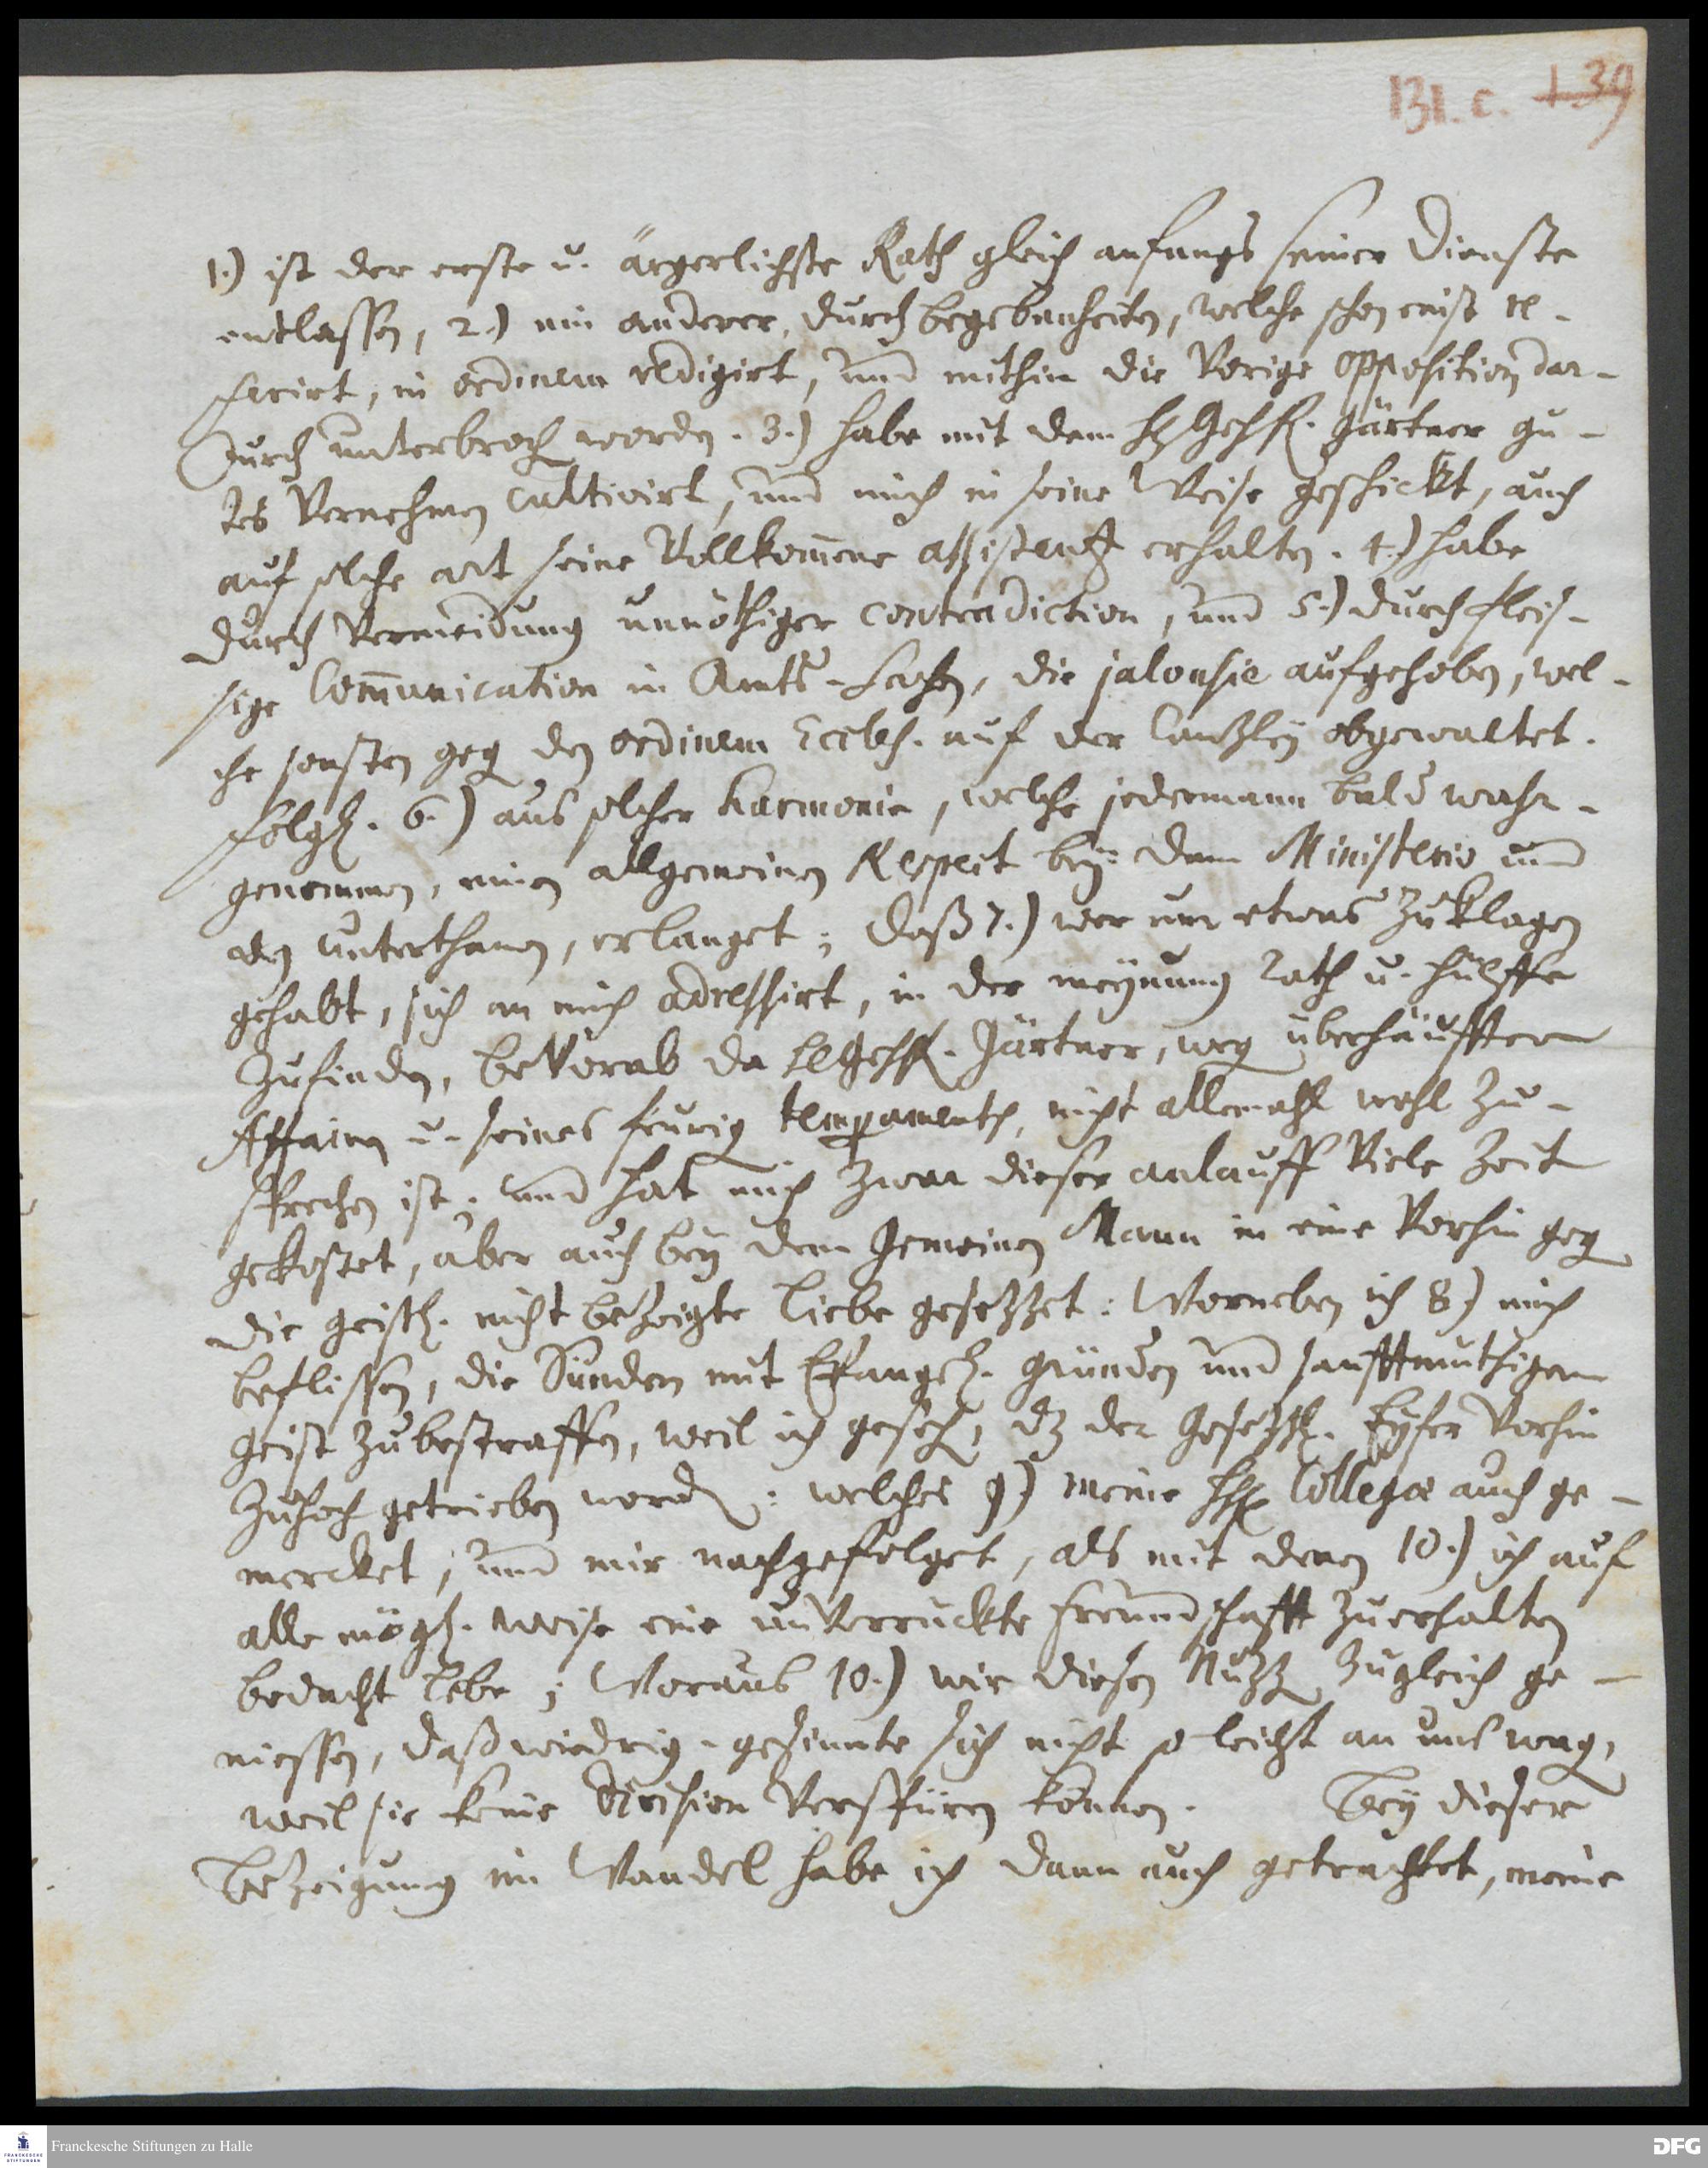 131.c. 139
1.) ist der erste u. ärgerlichste Rath gleich anfangs seiner Dienste
entlassen, 2.) ein anderer, durch begebenheiten, welche schon einst re-
ferirt, in ordinem redigirt, und mithin die Vorige opposition dar-
durch unterbroch worden. 3.) habe mit dem H Gehh. Gärtner gu-
tes Vernehmen cultivirt, und mich in seine Weise geschickt, auch
auf solche art seine Vollkom̄ene assistentz erhalten. 4.) habe
durch Vermeidung unnöthiger contradiction, und 5.) durch fleis-
sige Com̄unication in Amts-Sachen, die jalousie aufgehoben, wel-
che sonsten geg den ordinem Eccles. auf der Cantzley obgewaltet.
folgh. 6.) aus solcher harmonie, welche jedermann bald wahr-
genommen, einen allgemeinen Respect bey dem Ministerio und
den Unterthanen, erlanget; daß 7.) wer nur etwas zu klagen
gehabt, sich an mich adressirt, in der meynung rath u. hülffe
zufinden, beVorab da H Gehh. Gärtner, weg überhäufften
Affairen u. seines feurig temperaments, nicht allemahl wohl zu-
sprechen ist; und hat mich zwar dieser anlauff Viele Zeit
gekostet, aber auch bey dem gemeinen Mann in eine Vorhin geg
die geistl. nicht bezeigte Liebe gesetzet: Worneben ich 8.) mich
beflissen, die Sünden mit Evangel. gründen und sanfftmuthigem
geist zubestraffen, weil ich geseh, dz der Gesetzl. Eyfer Vorhin
zuhoch getrieben word: welches 9.) meine HH Collegæ auch ge-
mercket, und mir nachgefolget, als mit denen 10.) ich auf
alle mögl. weise eine unVerruckte freundschafft zuerhalten
bedacht lebe; Woraus 10.) wir diesen Nutz zugleich ge-
niessen, daß wiedrig-gesinnte sich nicht so leicht an uns wag,
weil sie keine division Verspüren können. Bey dieser
Bezeigung im Wandel habe ich dann auch getrachtet, meine
Franckesche Stiftungen zu Halle
DFG